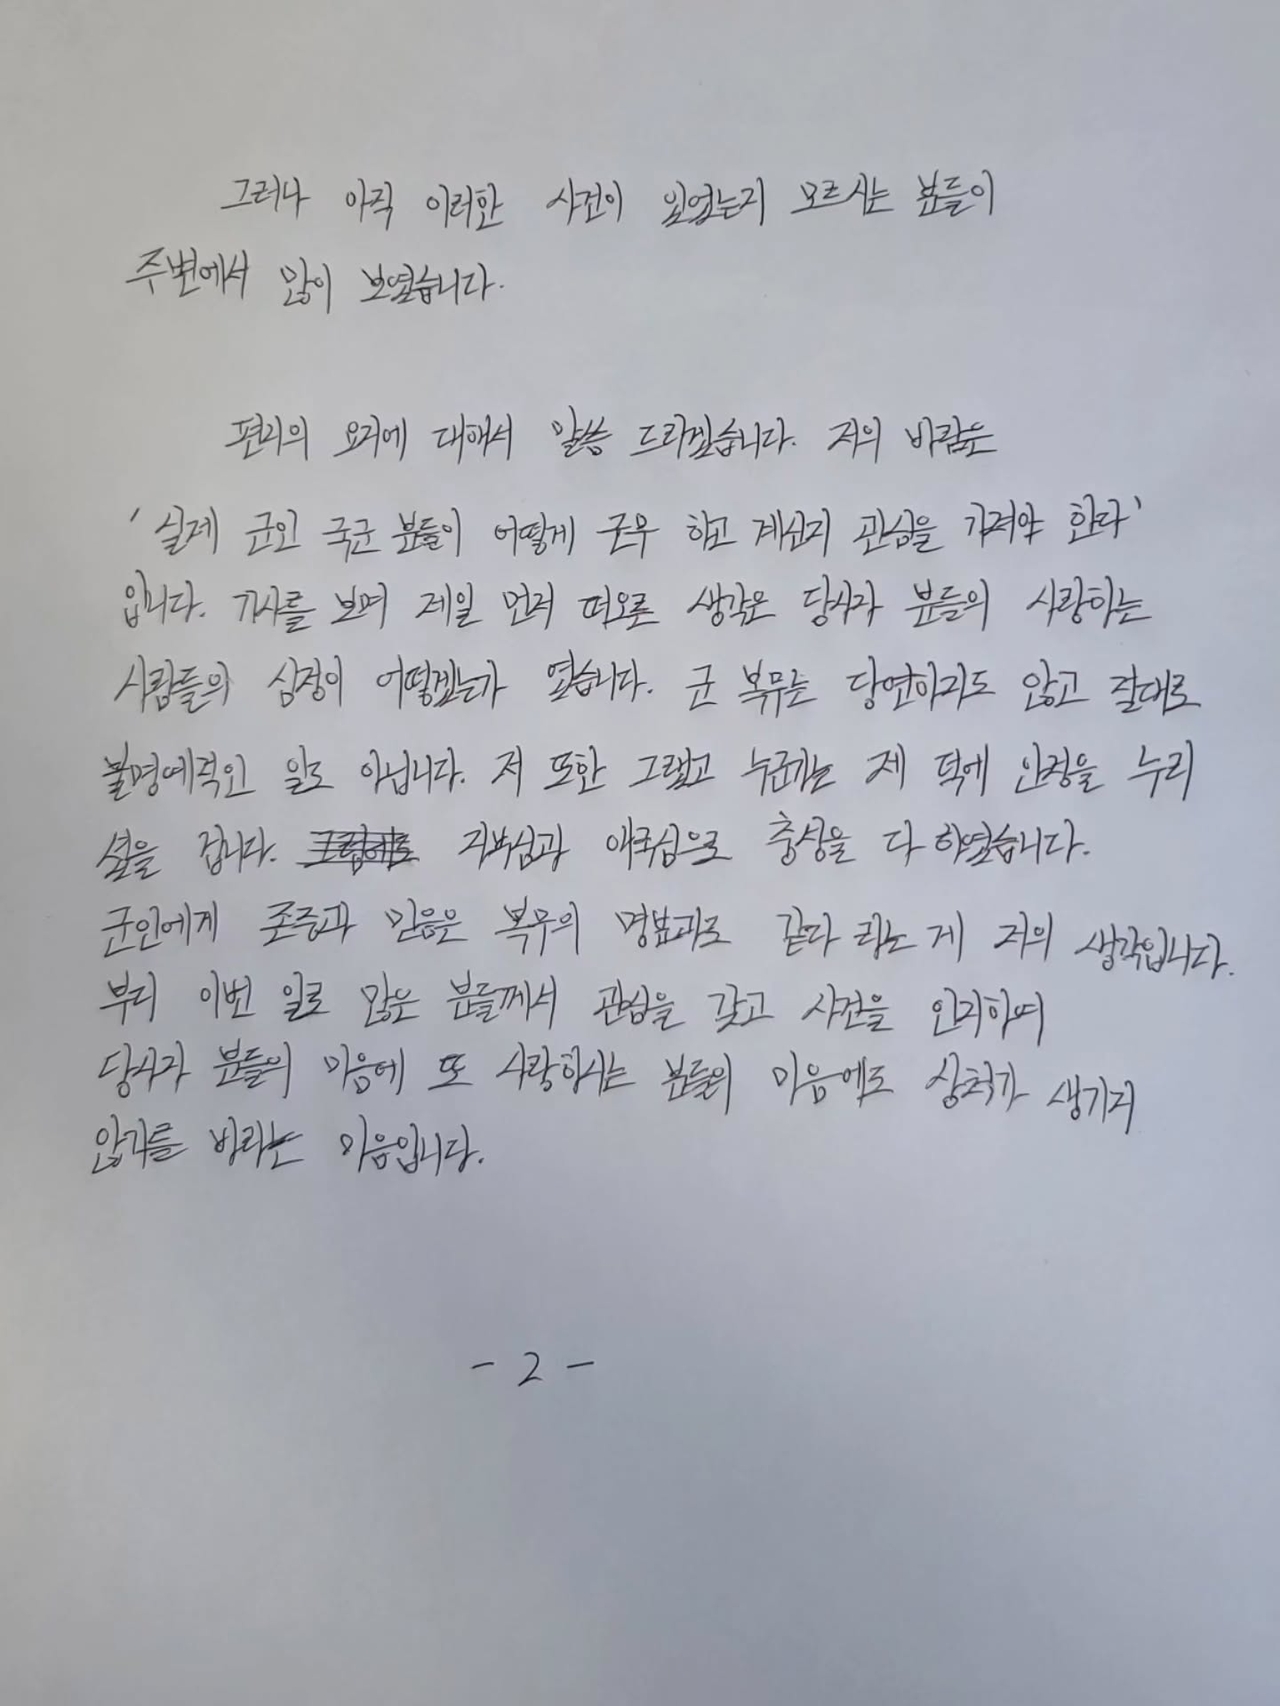 그러나 아직 이러한 사건이 있었는지 모르시는 분들이
주변에서 많이 보였습니다.
편지의 요지에 대해서 말씀 드리겠습니다. 저의 바람은
'실제 군인 국군 분들이 어떻게 근무 하고 계신지 관심을 가져야 한다'
입니다. 기사를 보며 제일 먼저 떠오른 생각은 당사자 분들의 사랑하는
사람들의 심정이 어떻겠는가 였습니다. 군 복무는 당연하지도 않고 절대로
불명예적인 일도 아닙니다. 저 또한 그랬고 누군가는 제 덕에 안정을 누리
셨을 겁니다. 자부심과 애국심으로 충성을 다 하였습니다.
군인에게 존중과 믿음은 복무의 명분과도 같다 라는 게 저의 생각입니다.
부디 이번 일로 많은 분들께서 관심을 갖고 사건을 인지하여
당사자 분들의 마음에 또 사랑하시는 분들의 마음에도 상처가 생기지
않기를 바라는 마음입니다.
- 2 -